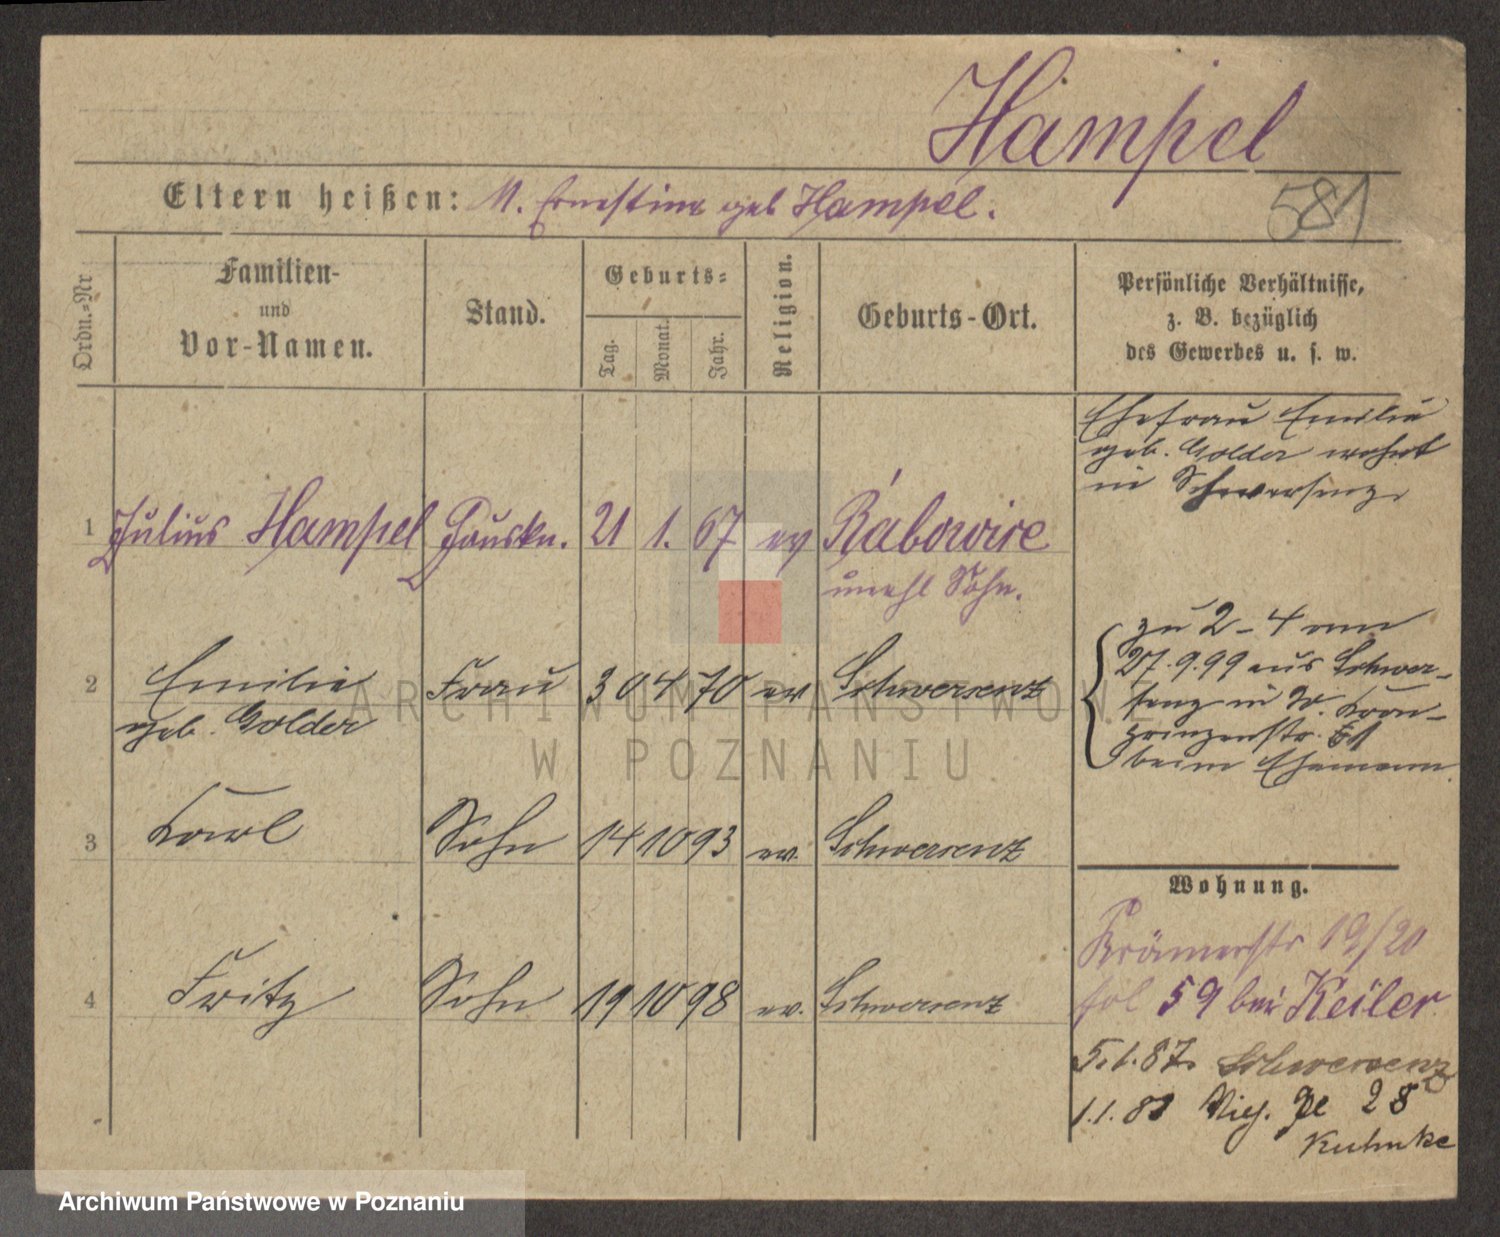 Hampel
Eltern heißen: M. Ernestine geb Hampel.
581
Ordn.-Nr
Familien-
und
Vor-Namen.
Stand.
Geburts-
Tag.
Monat.
Jahr.
Religion.
Geburts-Ort.
Persönliche Verhältnisse,
z. B. bezüglich
des Gewerbes u. s. w.
Ehefrau Emilie
geb. Golder wohnt
in Schwersenz
1 Julius Hampel Hauskn. 21 1. 67 ev Rabowice
unehl Sohn.
2 Emilie Frau 30 4 70 ev Schwersenz
geb. Golder
zu 2-4 am
27.9.99 aus Schwer-
senz in Kron-
prinzenstr.
beim Ehemann
3 Karl Sohn 14 10 93 ev. Schwersenz
4 Fritz Sohn 19 10 98 ev. Schwersenz
Wohnung.
Krämerstr 19/20
fol 59 bei Keiler
5.1.87. Schwersenz
28
Kuhnke
ARCHIWUM PAŃSTWOWE
W POZNANIU
Archiwum Państwowe w Poznaniu